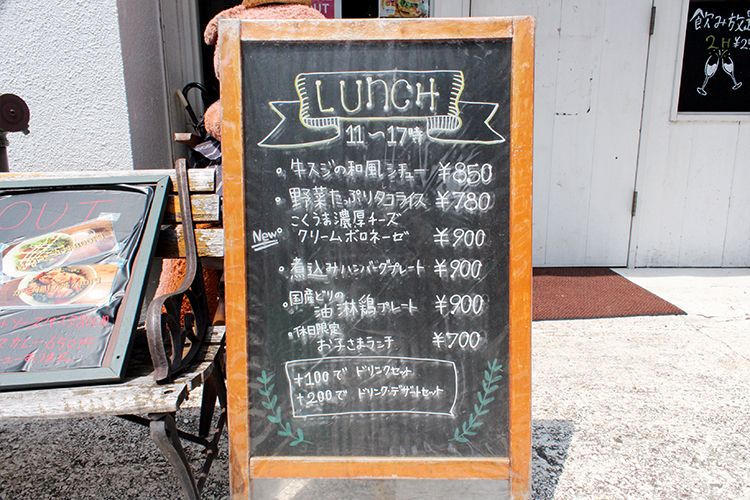 LUNCH
11〜17時
・牛スジの和風シチュー ¥850
・野菜たっぷりタコライス ¥780
こくうま濃厚チーズ
New クリームボロネーゼ ¥900
・煮込みハンバーグプレート ¥900
・国産どりの
油淋鶏プレート ¥900
・休日限定
お子さまランチ ¥700
+100で ドリンクセット
+200で ドリンク・デザートセット
OUT
飲み放
2H ¥2